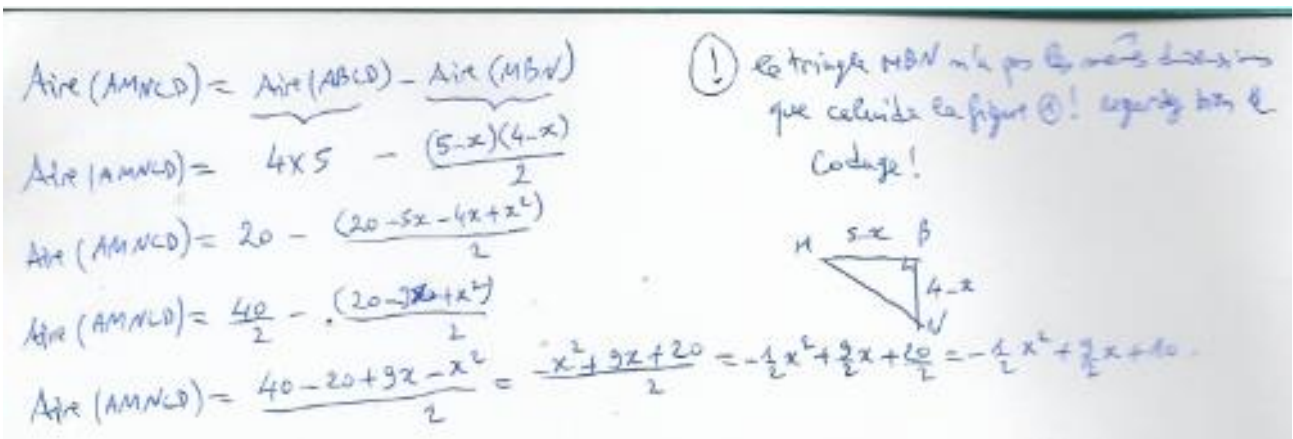 Aire (AMNCD) = Aire (ABCD) - Aire (MBN)
Aire (AMNCD) = 4 x 5 - (5-x)(4-x)/2
Aire (AMNCD) = 20 - (20-5x-4x+x²)/2
Aire (AMNCD) = 40/2 - (20-9x+x²)/2
Aire (AMNCD) = (40-20+9x-x²)/2 = (-x²+9x+20)/2 = -1/2 x² + 9/2 x + 20/2 = -1/2 x² + 9/2 x + 10.
(!) le triangle MBN n'a pas les mêmes dimensions
que celui de la figure ①! regardez bien le
Codage!
M 5-x B
4-x
N